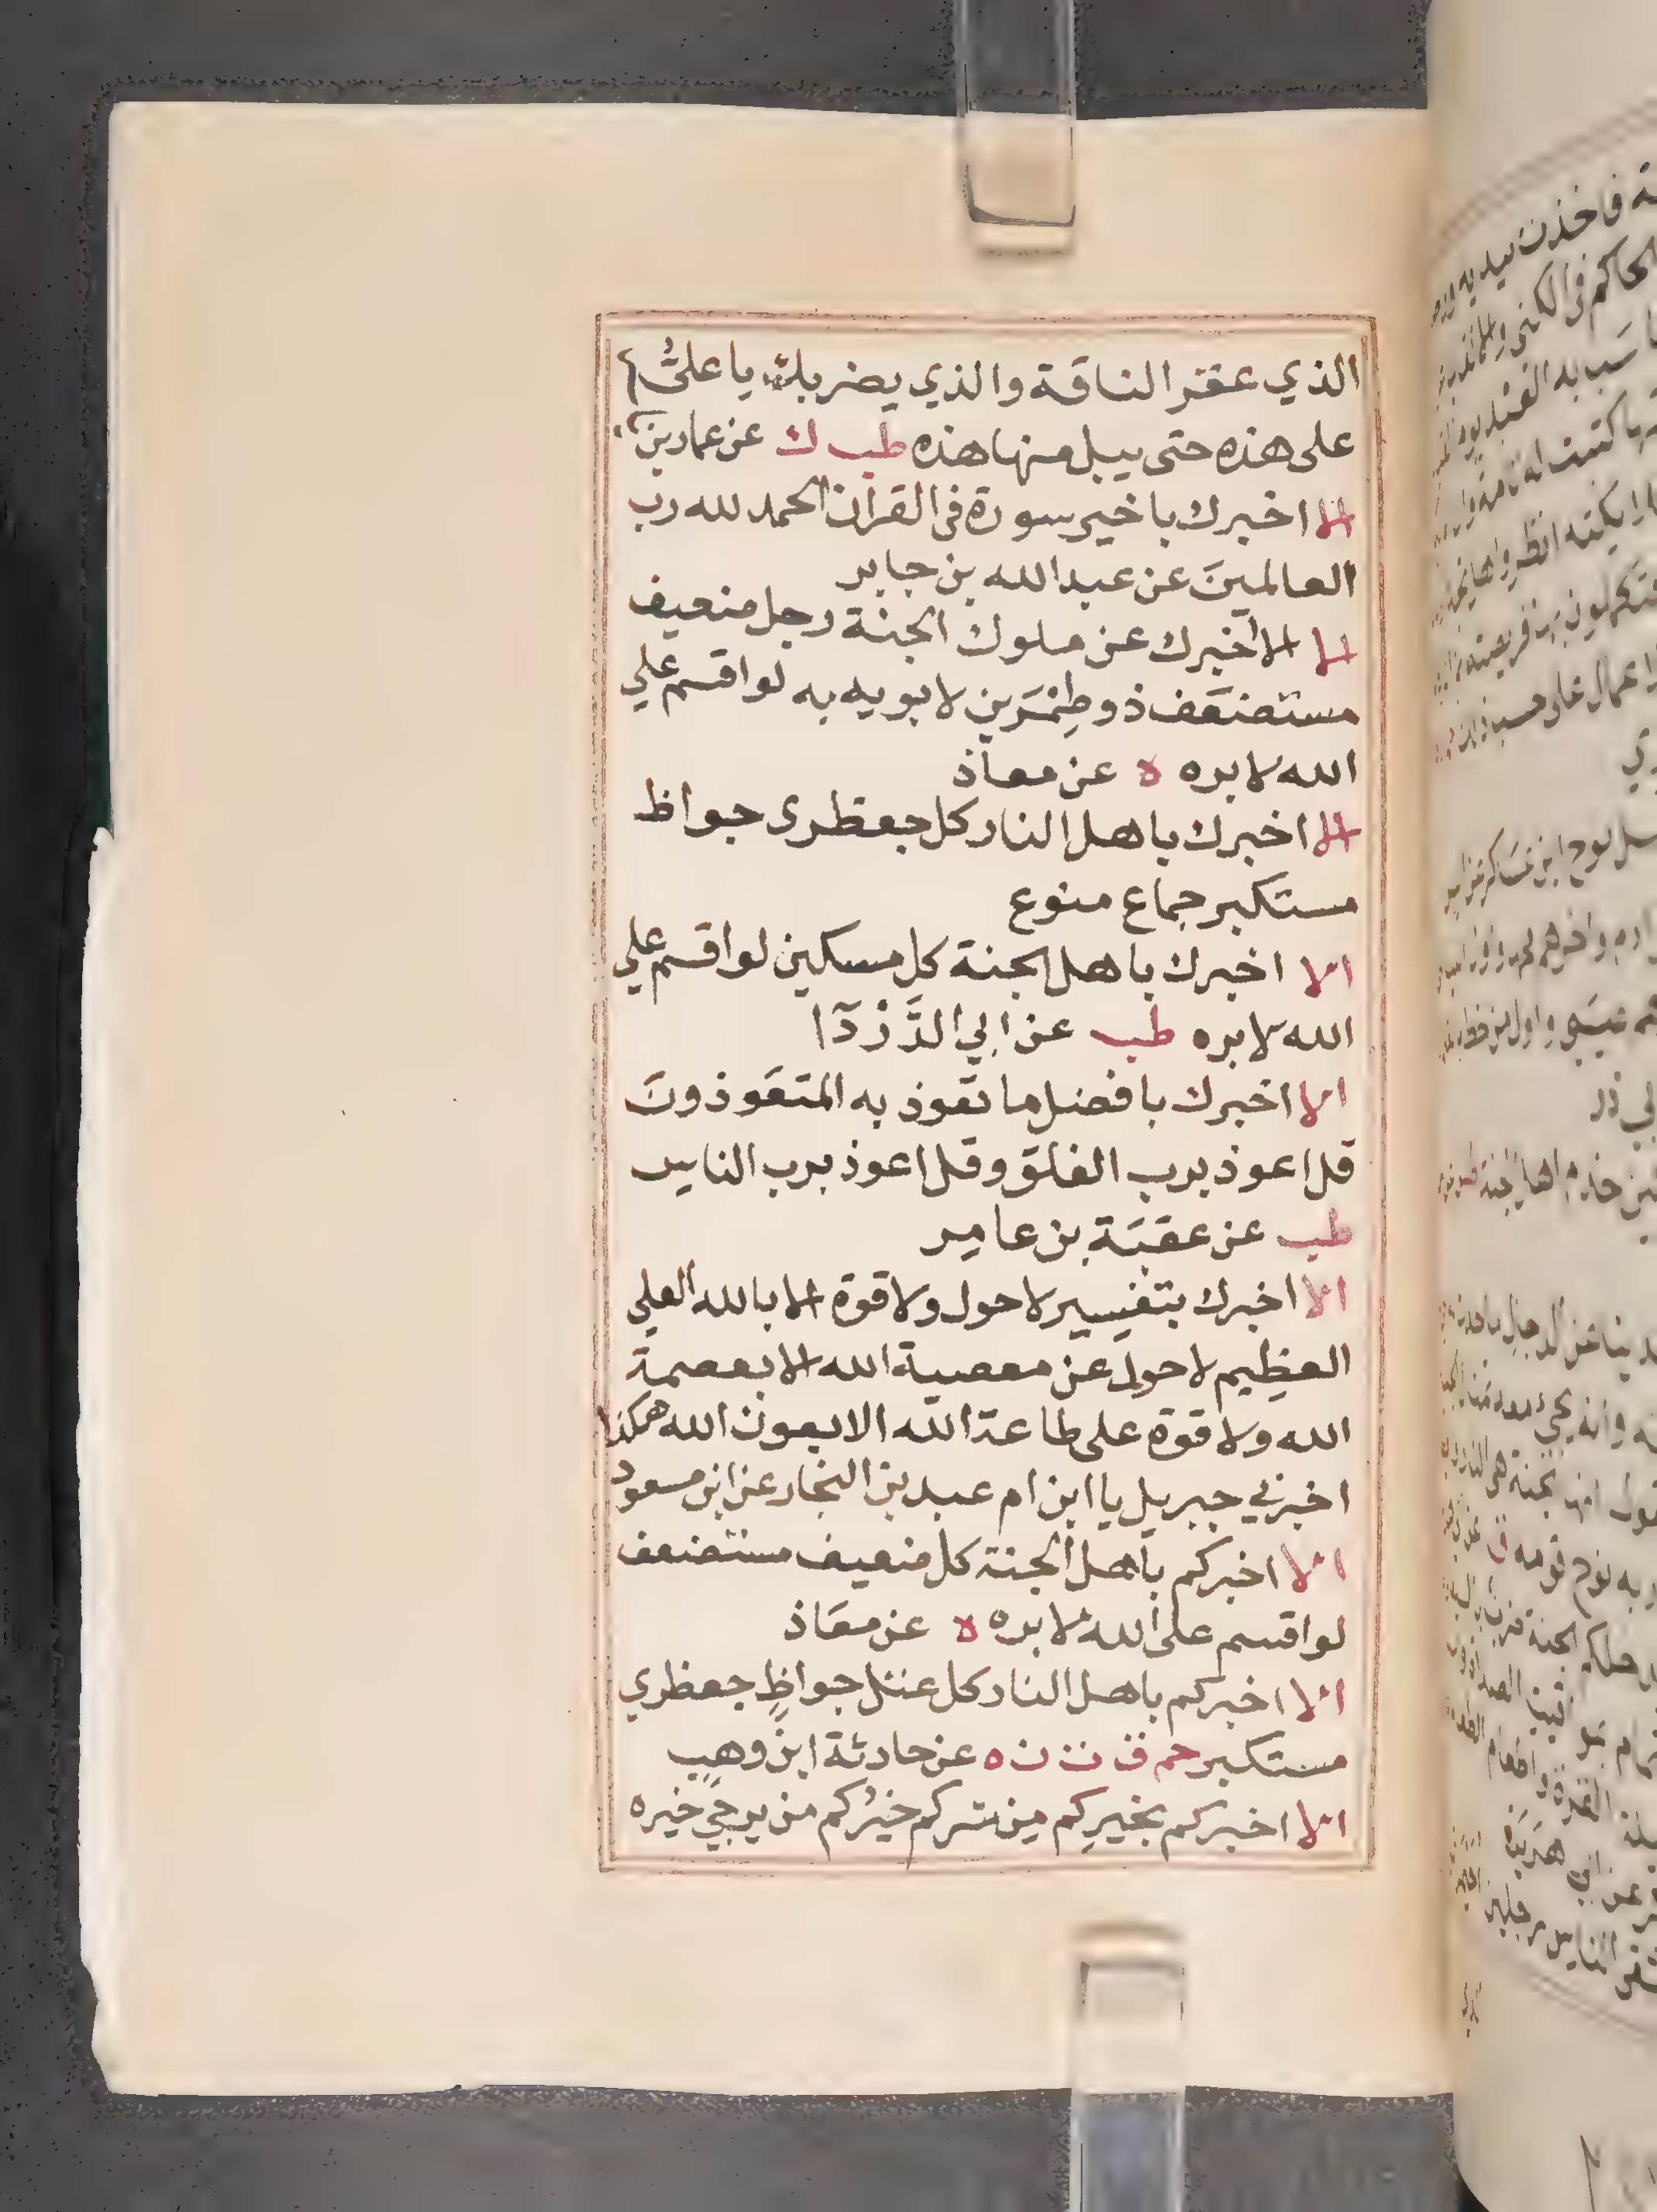 الذي عقر الناقة والذي يضربك يا علي
على هذه حتى يبل منها هذه طب ك عن عمار بن
الا اخبرك باخير سورة في القران الحمد لله رب
العالمينَ عن عبد الله بن جابر
الا الا اخبرك عن ملوك الجنة رجل ضعيف
مستضعَف ذو طِمْرَين لا يوبه به لو اقسم علي
الله لابره ه عن معاذ
الا اخبرك باهل النار كل جعظرى جواظ
مستكبر جماع منوع
الا اخبرك باهل الجنة كل مسكين لو اقسم علي
الله لابره طب عن ابي الدَّرْدَا
الا اخبرك بافضل ما تعوذ به المتعَوذونَ
قل اعوذ برب الفلق وقل اعوذ برب الناس
طب عن عقبَة بن عامِر
الا اخبرك بتفسير لا حول ولا قوة الا بالله العلى
العظِيم لا حول عن معصية الله الا بعصمة
الله ولا قوة على طاعة الله الا بعون الله هكذا
اخبرني جبريل يا ابن ام عبد بن النجار عن ابن مسعود
الا اخبركم باهل الجنة كل ضعيف مستضعف
لو اقسم على الله لابره ه عن معَاذ
الا اخبركم باهل النار كل عتل جواظٍ جعظري
مستكبر حم ق ت ن ه عن حارثة ابن وهب
الا اخبركم بخيرِكم مِن شركم خيرُكم من يرجَي خيره